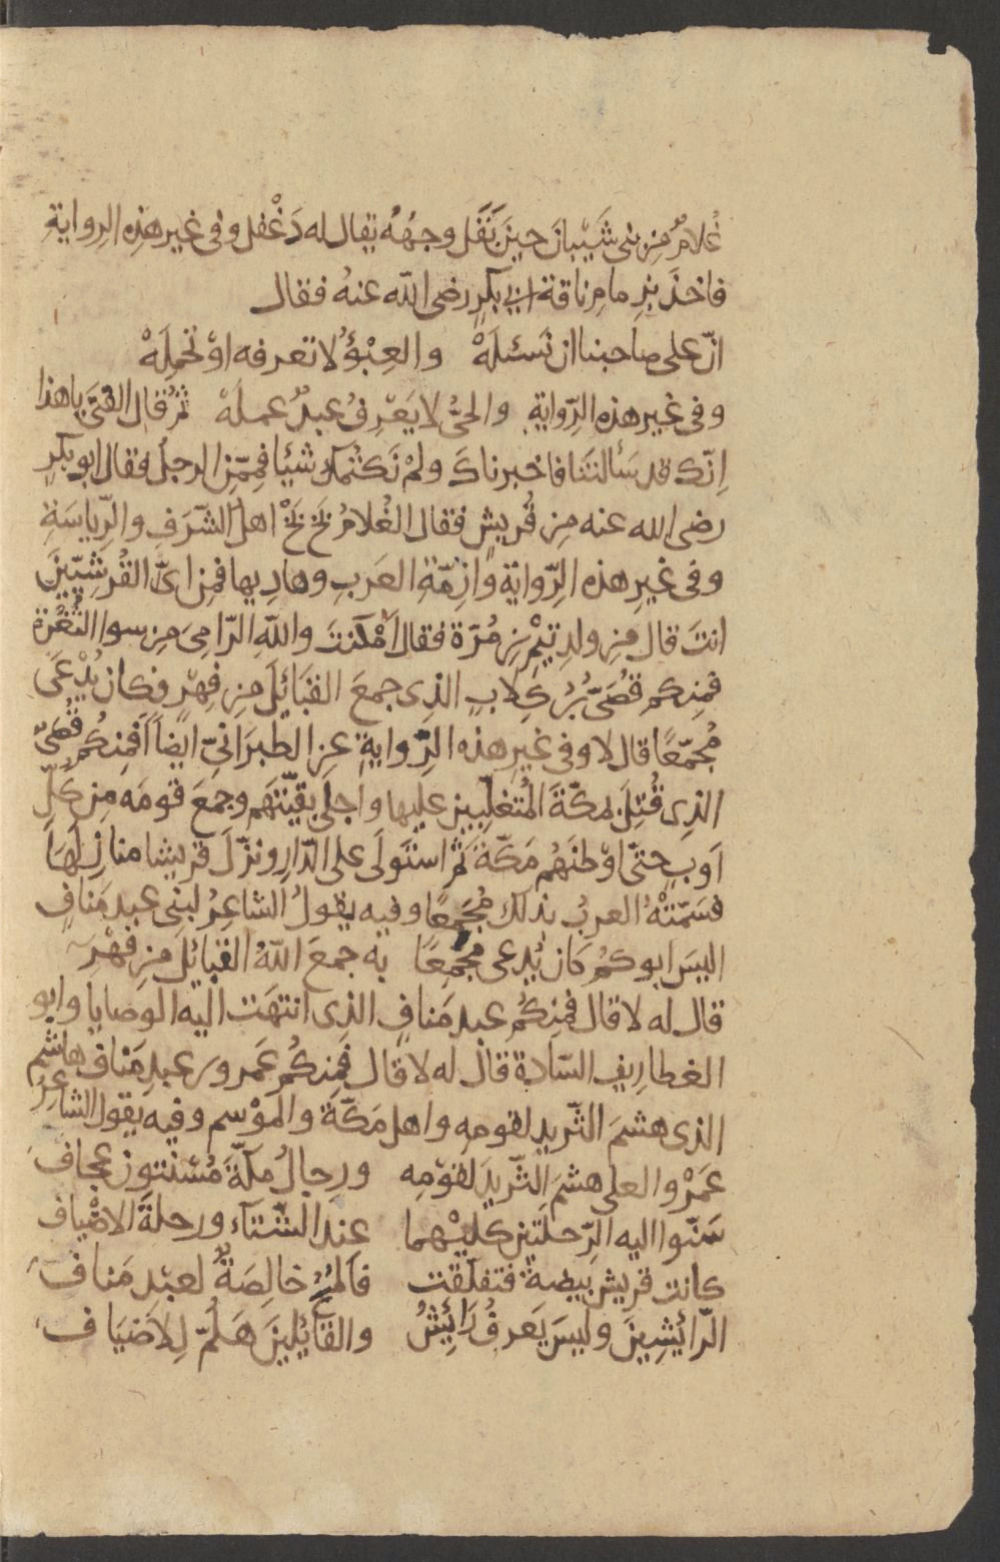 غُلامٌ مِن بنى شَيْبانَ حينَ بَقَل وجهُهُ يقال له دَغْفل وفى غير هذِه الرِواية
فاخذَ بزِمامِ ناقة ابى بكرٍ رضى اللّه عنهُ فقال
انّ على صاحبنا ان نَسئلَهْ والعِبْؤُ لا تعرفه اوْ تحمِلَهْ
وفى غيرِ هذه الرِّوايةِ والحىُّ لا يَعْرِفُ عبدٌ عملَهْ ثمَّ قال الفتَى يا هذا
اِنّكَ قد سَألتَنا فاخبرناكَ ولمْ نَكتُمكَ شيًا فمِمّن الرجلُ فقال ابو بكرٍ
رضى الله عنه مِن قُريشٍ فقال الغُلامُ بَخْ بَخْ اهلُ الشّرَفِ والرِّياسَةِ
وفى غيرِ هذه الرِّواية وازِمّةِ العَربِ وهادِيها فمِن اىِّ القُرشِيّينَ
انتَ قال مِن ولدِ تيْمِ بنِ مُرّة فقال اَمْكَنتَ واللّهِ الرّامِىَ مِن سوا الثُّغْرة
فمِنكم قُصَىُّ بْنُ كِلابٍ الذِى جمعَ القبَائِلَ مِن فِهْرٍ فكان يُدْعَى
مُجمّعًا قال لا وفى غير هذه الرِّوايةِ عنِ الطبَرَانىّ ايضًا اَفمِنكُم قُصَىٌّ
الذِى قُتِلَ بمكّةَ المُتغلّبين عليها واجلى بقيّتهَم وجمعَ قومَه مِن كلِّ
اَوبٍ حتّى اوْطنَهُم مَكّةَ ثمّ استولَى على الدّارِ ونزّلَ قريشا منازِلَهَا
فسَمّتْهُ العربُ بذلك مُجمّعًا وفيه يقولُ الشاعِرُ لبَنِى عبدِ مَنافٍ
اليسَ ابوكمُ كان يُدعى مُجمّعًا به جمعَ اللّهُ القبائلَ مِن فهْرِ
قال له لا قال فمِنكُم عبد مَنافٍ الذِى انتهَت اليه الوصايا وابو
الغطارِيفِ السّادة قال له لا قال فمِنكُم عَمرو بن عبدِ مَناف هاشم
الذى هشمَ الثّرِيد لقومِهِ واهلِ مَكّةَ والموْسِمِ وفيه يقولُ الشاعِرُ
عَمْرو العلى هشمَ الثّرِيدَ لقوْمِه ورجالُ مكّةَ مُسْنتون عِجافُ
سَنّوا اليه الرّحلتَين كليْهما عند الشّتآء ورحلةَ الاضْيافِ
كانت قريش بيضةً فتفلّقت فالمُحُّ خالِصَةٌ لعبْدِ مَنافِ
الرّائِشِينَ وليسَ يَعرفُ رَائِشُ والقَائِلينَ هَلُمّ لِلاَضيَافِ